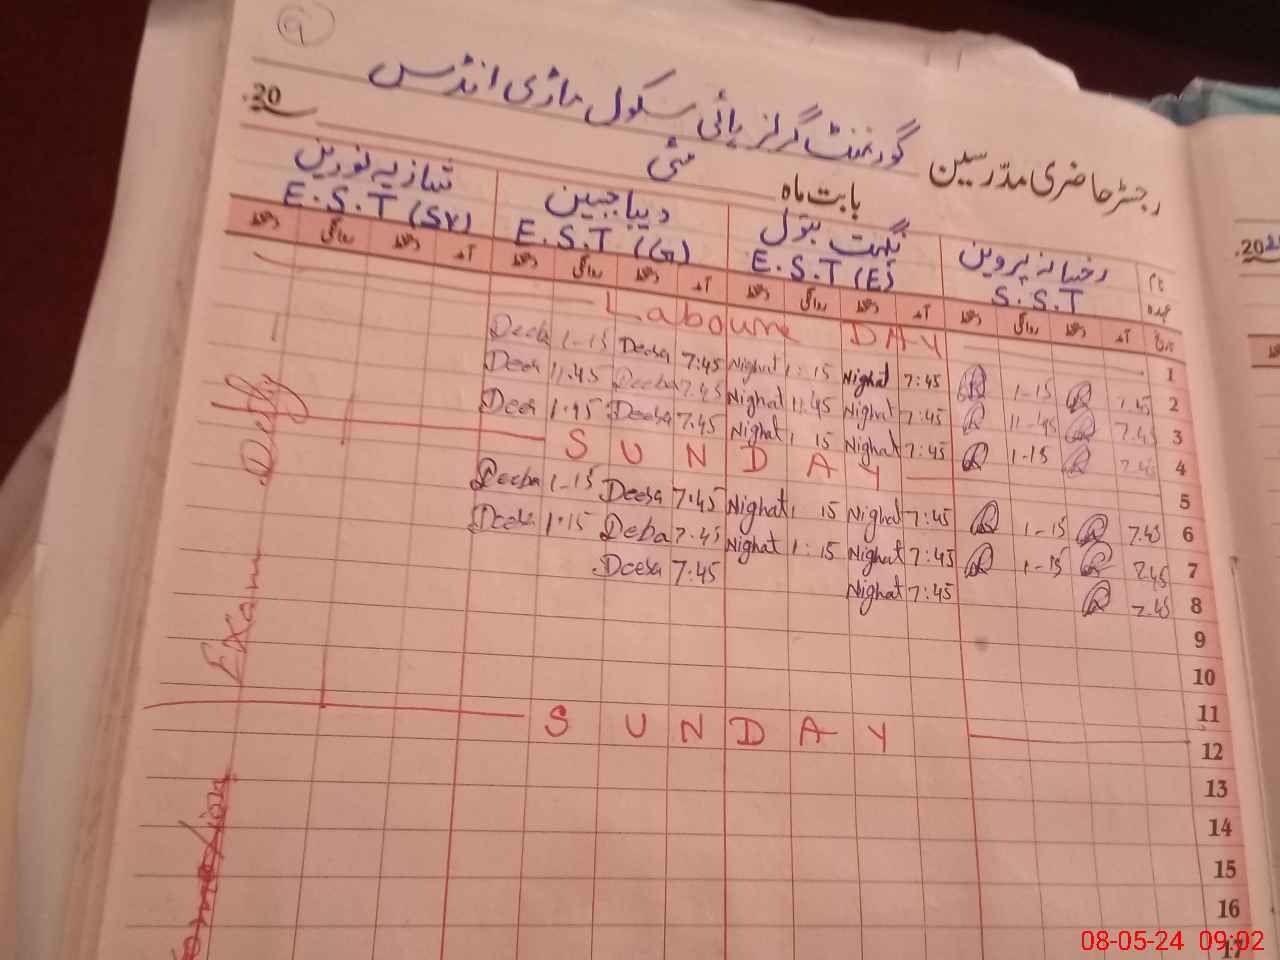 9
گورنمنٹ گرلز ہائی سکول ماڑی انڈس
رجسٹر حاضری مدرسین
بابت ماہ مئی
20
نام رخسانہ پروین نگہت بتول دیبا جبین شازیہ نورین
عہدہ S.S.T E.S.T (E) E.S.T (G) E.S.T (SV)
تاریخ آمد دستخط روانگی دستخط آمد دستخط روانگی دستخط آمد دستخط روانگی دستخط آمد دستخط روانگی دستخط
Labour DAY 1
Deeba 1-15 Deeba 7:45 Nighat 1:15 Nighat 7:45 1-15 7.45 2
Deeba 11.45 Deeba 7.45 Nighat 11.45 Nighat 7:45 11-45 7.45 3
Deeba 1.15 Deeba 7.45 Nighat 1 15 Nighat 7:45 1-15 7.45 4
SUNDAY 5
Deeba 1-15 Deeba 7.45 Nighat 1 15 Nighat 7:45 1-15 7.45 6
Deeba 1.15 Deba 7.45 Nighat 1:15 Nighat 7:45 1-15 7.45 7
Deeba 7:45 Nighat 7:45 7.45 8
9
10
11
SUNDAY 12
13
14
15
16
17
Exam Duty
20
08-05-24 09:02